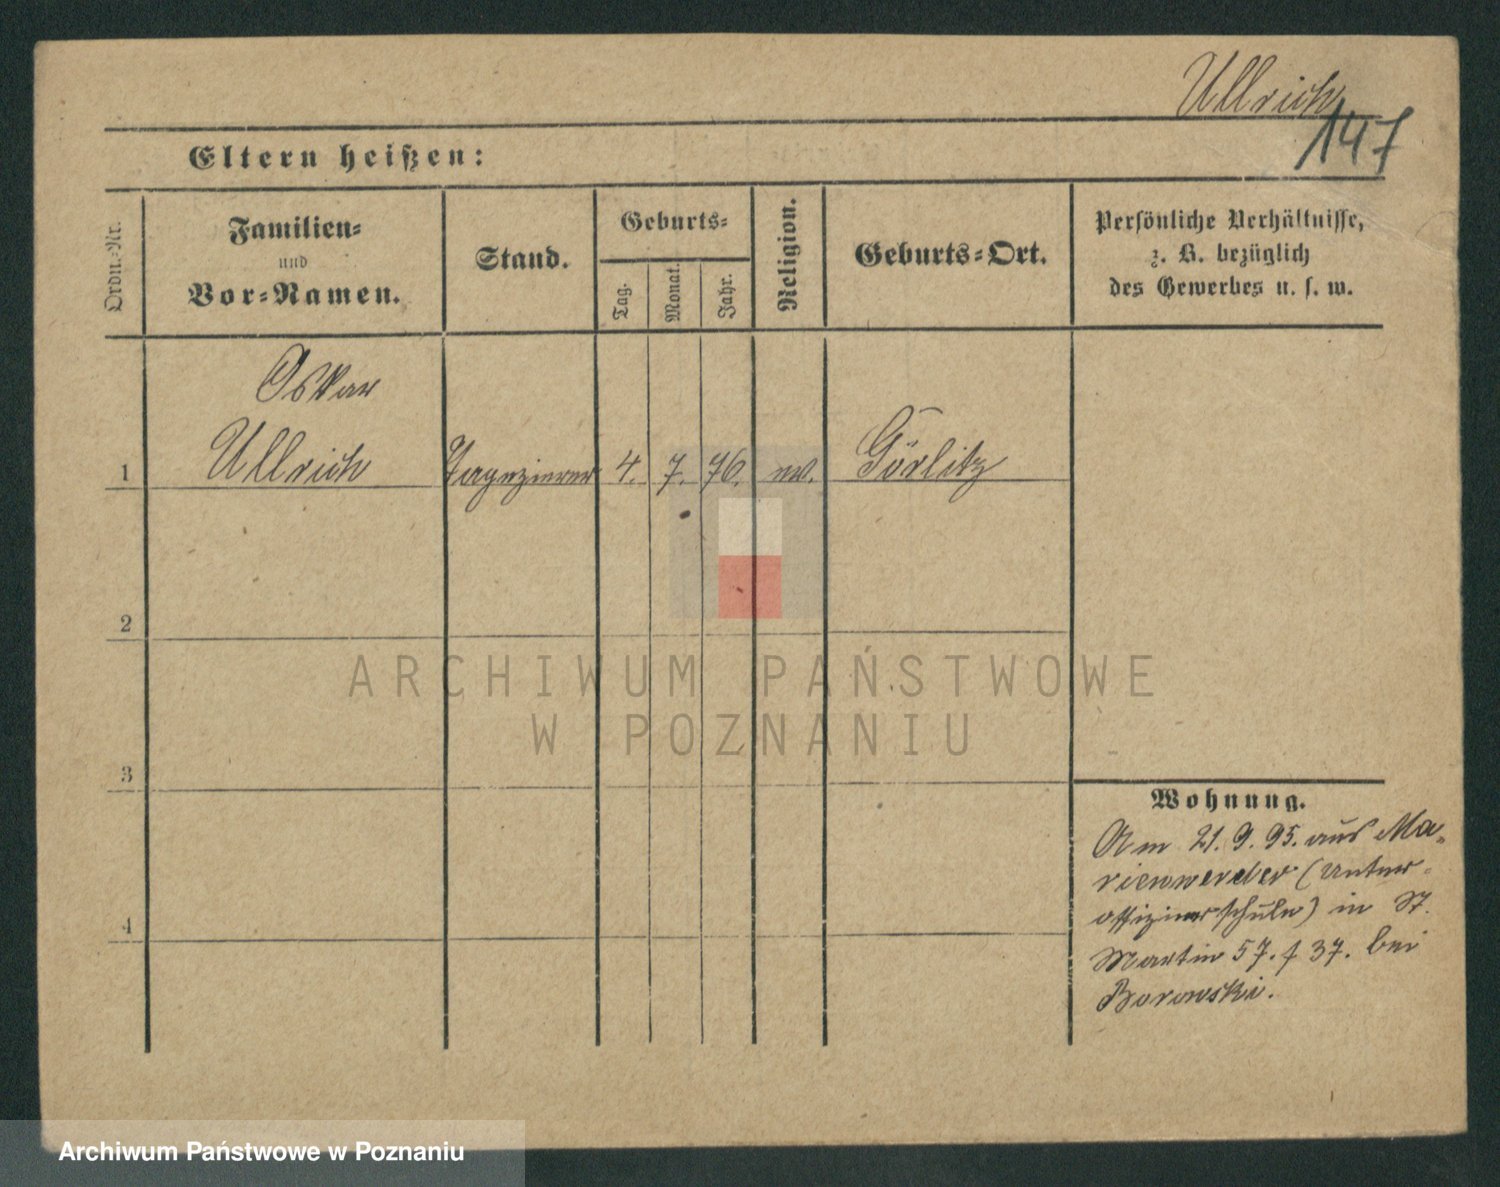 Ullrich
147
Eltern heißen:
Ordn.-Nr.
Familien-
und
Vor-Namen.
Stand.
Geburts-
Tag.
Monat.
Jahr.
Religion.
Geburts-Ort.
Persönliche Verhältnisse,
z. B. bezüglich
des Gewerbes u. s. w.
Oskar
1 Ullrich Tapezierer 4. 7. 76. ev. Görlitz
2
3
4
Wohnung.
Am 21. 9. 95. aus Ma-
rienwerder (Unter-
offizierschule) in St.
Martin 57. 37. bei
Borowski.
ARCHIWUM PAŃSTWOWE
W POZNANIU
Archiwum Państwowe w Poznaniu